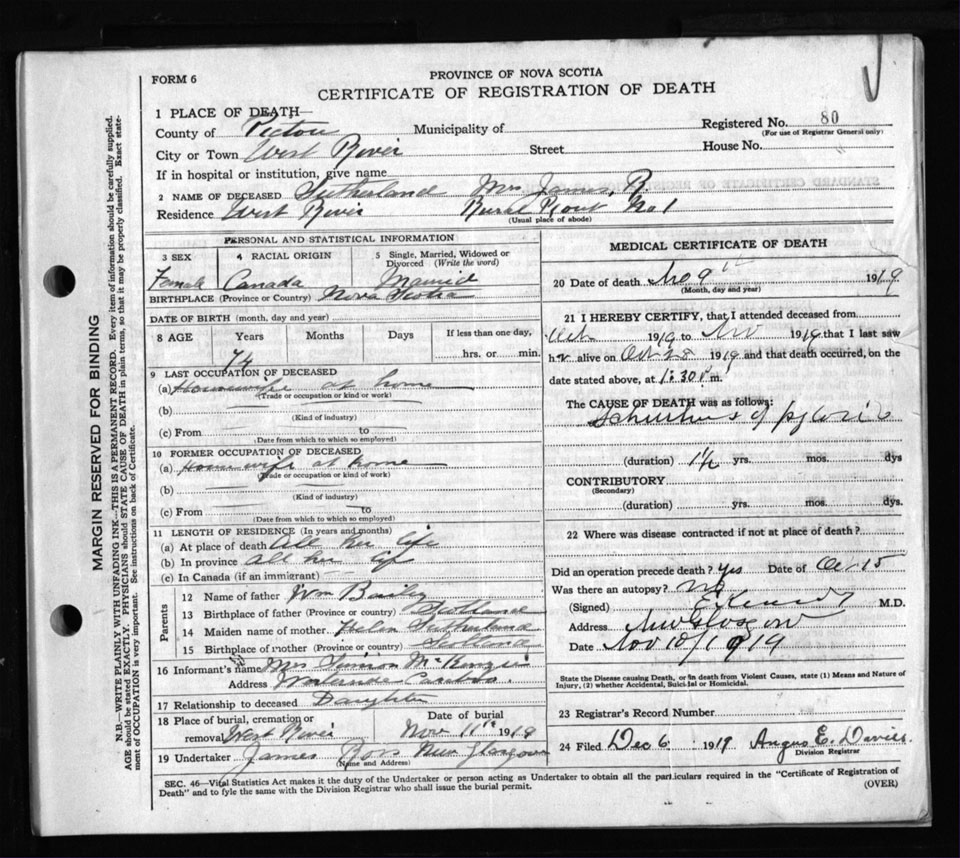 FORM 6
PROVINCE OF NOVA SCOTIA
CERTIFICATE OF REGISTRATION OF DEATH
1 PLACE OF DEATH—
County of Pictou Municipality of
Registered No. 80
(For use of Registrar General only)
City or Town West River Street House No.
If in hospital or institution, give name
2 NAME OF DECEASED Sutherland Mrs James, R
Residence West River Rural Rout No 1
(Usual place of abode)
PERSONAL AND STATISTICAL INFORMATION
3 SEX 4 RACIAL ORIGIN 5 Single, Married, Widowed or Divorced (Write the word)
Female Canada Married
BIRTHPLACE (Province or Country) Nova Scotia
DATE OF BIRTH (month, day and year)
8 AGE Years Months Days If less than one day,
74 hrs. or min.
9 LAST OCCUPATION OF DECEASED
(a) Housewife at home
(Trade or occupation or kind or work)
(b)
(Kind of industry)
(c) From to
(Date from which to which so employed)
10 FORMER OCCUPATION OF DECEASED
(a) House wife at home
(Trade or occupation or kind of work)
(b)
(Kind of industry)
(c) From to
(Date from which to which so employed)
11 LENGTH OF RESIDENCE (In years and months)
(a) At place of death All her life
(b) In province All her life
(c) In Canada (if an immigrant)
Parents
12 Name of father Wm Bailey
13 Birthplace of father (Province or country) Scotland
14 Maiden name of mother Helen Sutherland
15 Birthplace of mother (Province or country) Scotland
16 Informant's name Mrs Simon McKenzie
Address
17 Relationship to deceased Daughter
18 Place of burial, cremation or removal West River
Date of burial Nov 11th 1919
19 Undertaker James Ross New Glasgow
(Name and Address)
MEDICAL CERTIFICATE OF DEATH
20 Date of death Nov 9th 1919
(Month, day and year)
21 I HEREBY CERTIFY, that I attended deceased from
Oct 1919 to Nov 1919 that I last saw
h er alive on Oct 28 1919 and that death occurred, on the
date stated above, at 1:30 p m.
The CAUSE OF DEATH was as follows:
of pyloris
(duration) 1½ yrs. mos. dys
CONTRIBUTORY
(Secondary)
(duration) yrs. mos. dys.
22 Where was disease contracted if not at place of death?
Did an operation precede death? Yes Date of Oct 15
Was there an autopsy? No
(Signed) M.D.
Address New Glasgow
Date Nov 10/1919
State the Disease causing Death, or in death from Violent Causes, state (1) Means and Nature of
Injury, (2) whether Accidental, Suicidal or Homicidal.
23 Registrar's Record Number
24 Filed Dec 6 1919 Angus E. Davies
Division Registrar
SEC. 46—Vital Statistics Act makes it the duty of the Undertaker or person acting as Undertaker to obtain all the particulars required in the "Certificate of Registration of
Death" and to fyle the same with the Division Registrar who shall issue the burial permit.
(OVER)
MARGIN RESERVED FOR BINDING
N.B.—WRITE PLAINLY WITH UNFADING INK—THIS IS A PERMANENT RECORD. Every item of information should be carefully supplied.
AGE should be stated EXACTLY. PHYSICIANS should STATE CAUSE OF DEATH in plain terms, so that it may be properly classified. Exact state-
ment of OCCUPATION is very important. See instructions on back of Certificate.